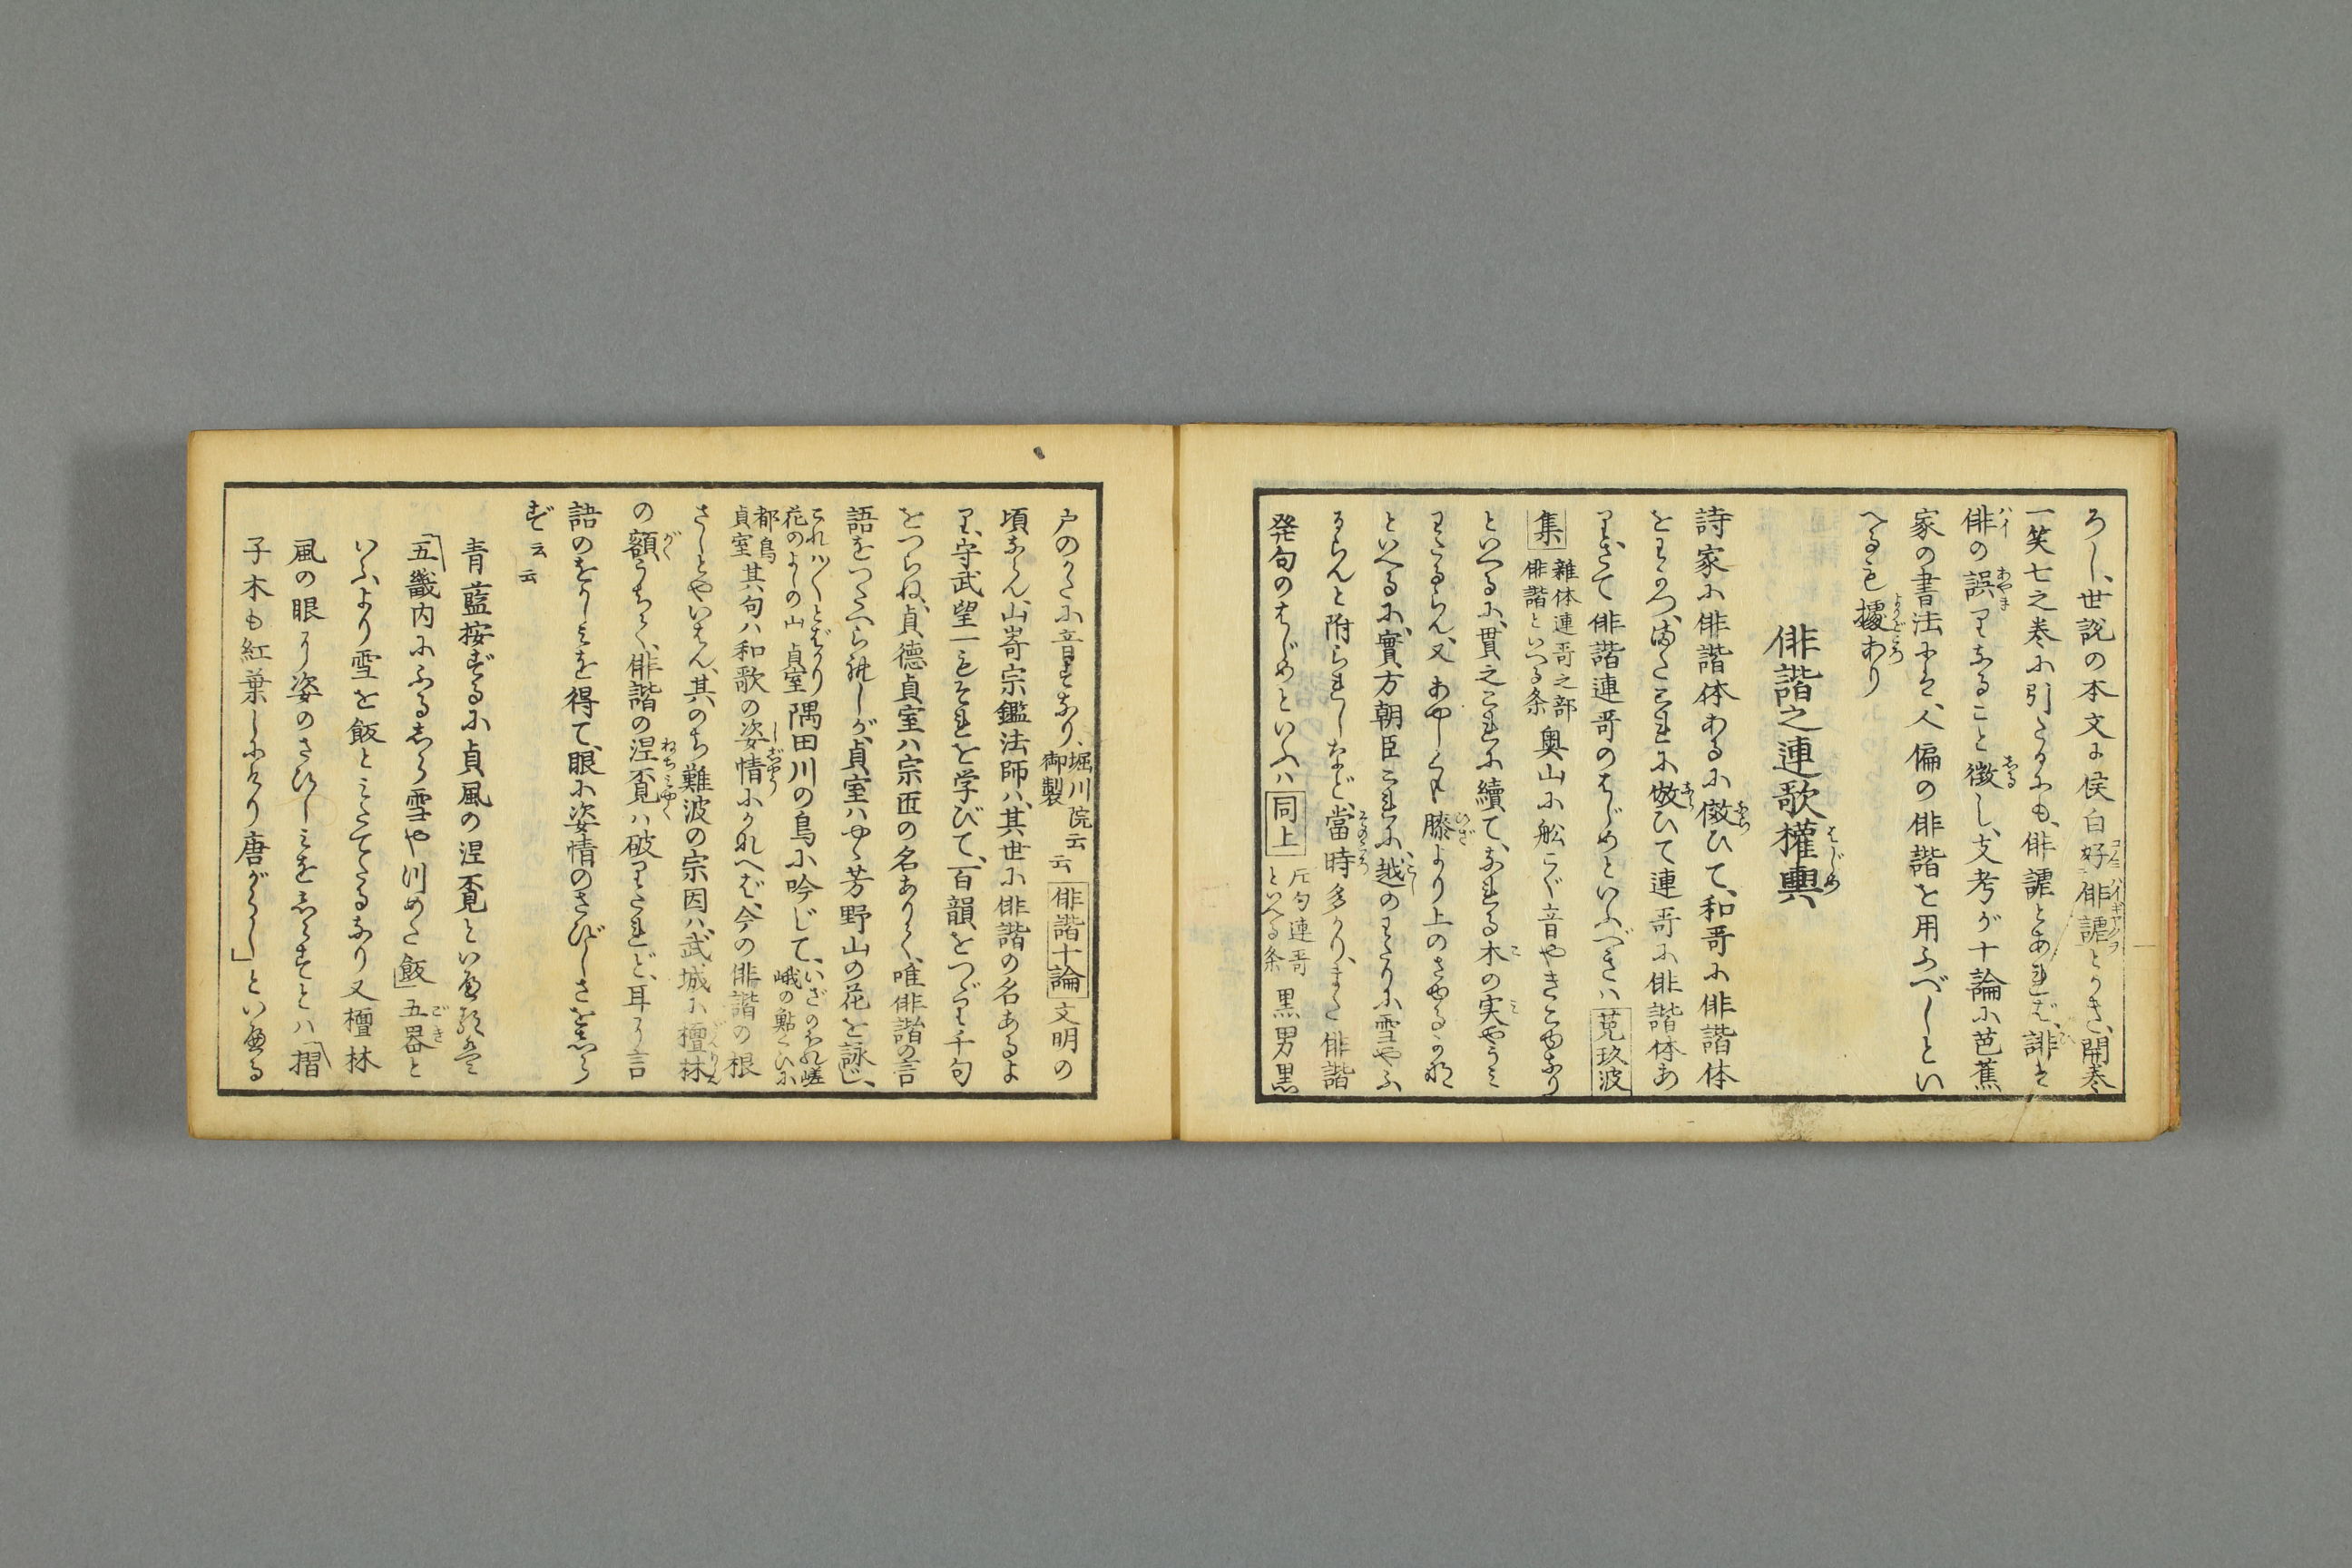 ろし、世説の本文に侯白好俳謔とかき、開巻
一笑七之巻に引たるにも、俳謔とあれば、誹は
俳の誤りなること徴し、支考が十論に芭蕉
家の書法には、人偏の俳諧を用ふべしとい
へるも據あり
俳諧之連歌權輿
詩家に俳諧体あるに傚ひて、和哥に俳諧体
をわかつ、またこれに倣ひて連哥に俳諧体あ
り、さて俳諧連哥のはじめといふべきは菟玖波
集 雑体連哥之部 俳諧といへる条 奥山に舩こぐ音やきこゆなり
といへるに、貫之これに續て、なれる木の実やうみ
わたるらん、又あやしくも膝より上のさゆるかな
といへるに、實方朝臣これに、越のわたりに雪やふ
るらんと附られしなど、當時多かり、また俳諧
発句のはじめといふは同上 片句連哥 といへる条 黒男黒
戸のかたに音すなり、堀川院 御製 云云 俳諧十論 文明の
頃ならん、山嵜宗鑑法師は、其世に俳諧の名あるよ
り、守武望一もそれを学びて、百韻をつゞり千句
をつらね、貞徳貞室は宗匠の名ありて、唯俳諧の言
語をつたへられしが、貞室はゆゝ芳野山の花を詠じ、
これは〳〵とばかり 花のよしの山 貞室 隅田川の鳥に吟じて、いざのぼれ嵯 峨の鮎くひに
都鳥 貞室 其句は和歌の姿情にかなへば、今の俳諧の根
ざしとやいはん、其のち難波の宗因は、武城に檀林
の額うちて、俳諧の涅槃は破りたれど、耳に言
語のをかしみを得て、眼に姿情のさびしさをしら
ず云云
青藍按ずるに貞風の涅槃といへる
「五畿内にふるしら雪や川めた飯」五器と
いふより雪を飯とみたてたるなり又檀林
風の眼に姿のさびしみをしらずとは「摺
子木も紅葉しにけり唐がらし」といへる